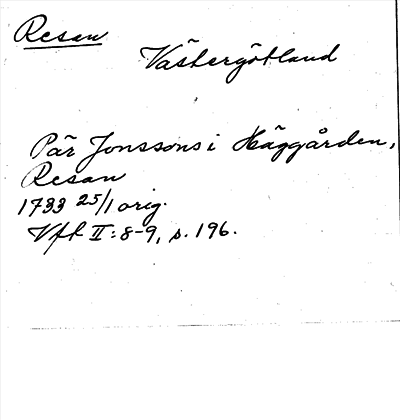 Resan
Västergötland
Pär Jonssons i Häggården,
Resan
1733 25/1 orig.
Vft II:8-9, s. 196.